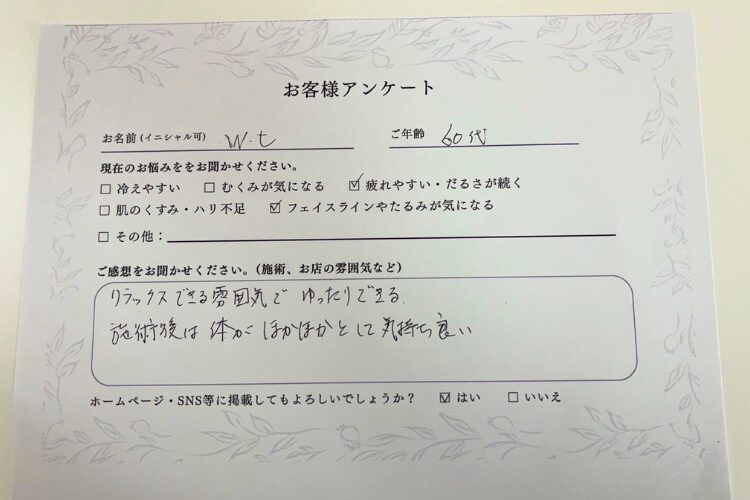 お客様アンケート
お名前(イニシャル可) W.t ご年齢 60代
現在のお悩みををお聞かせください。
☐ 冷えやすい ☐ むくみが気になる ☑ 疲れやすい・だるさが続く
☐ 肌のくすみ・ハリ不足 ☑ フェイスラインやたるみが気になる
☐ その他：
ご感想をお聞かせください。(施術、お店の雰囲気など)
リラックスできる雰囲気で ゆったりできる.
施術後は 体が ほかほかとして 気持ち良い
ホームページ・SNS等に掲載してもよろしいでしょうか？ ☑ はい ☐ いいえ